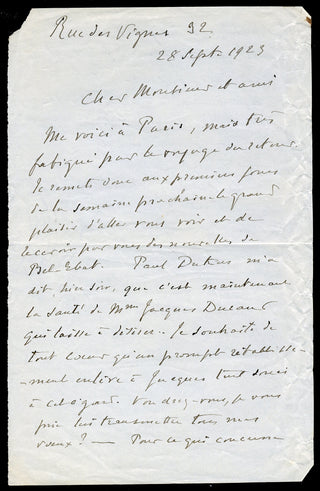 Rue des Vignes 32
28 Sept 1923
Cher Monsieur et ami
Me voici à Paris, mais très
fatigué par le voyage du retour.
Je remets donc aux premiers jours
de la semaine prochaine le grand
plaisir d'aller vous voir et de
recevoir par vous des nouvelles de
Bel-Ebat. Paul Dukas m'a
dit, hier soir, que c'est maintenant
la santé de Mme Jacques Durand
qui laisse à désirer. Je souhaite de
tout cœur qu'un prompt rétablisse-
ment enlève à Jacques tout souci
à cet égard. Voudrez-vous, je vous
prie lui transmettre tous mes
vœux ? — Pour ce qui concerne